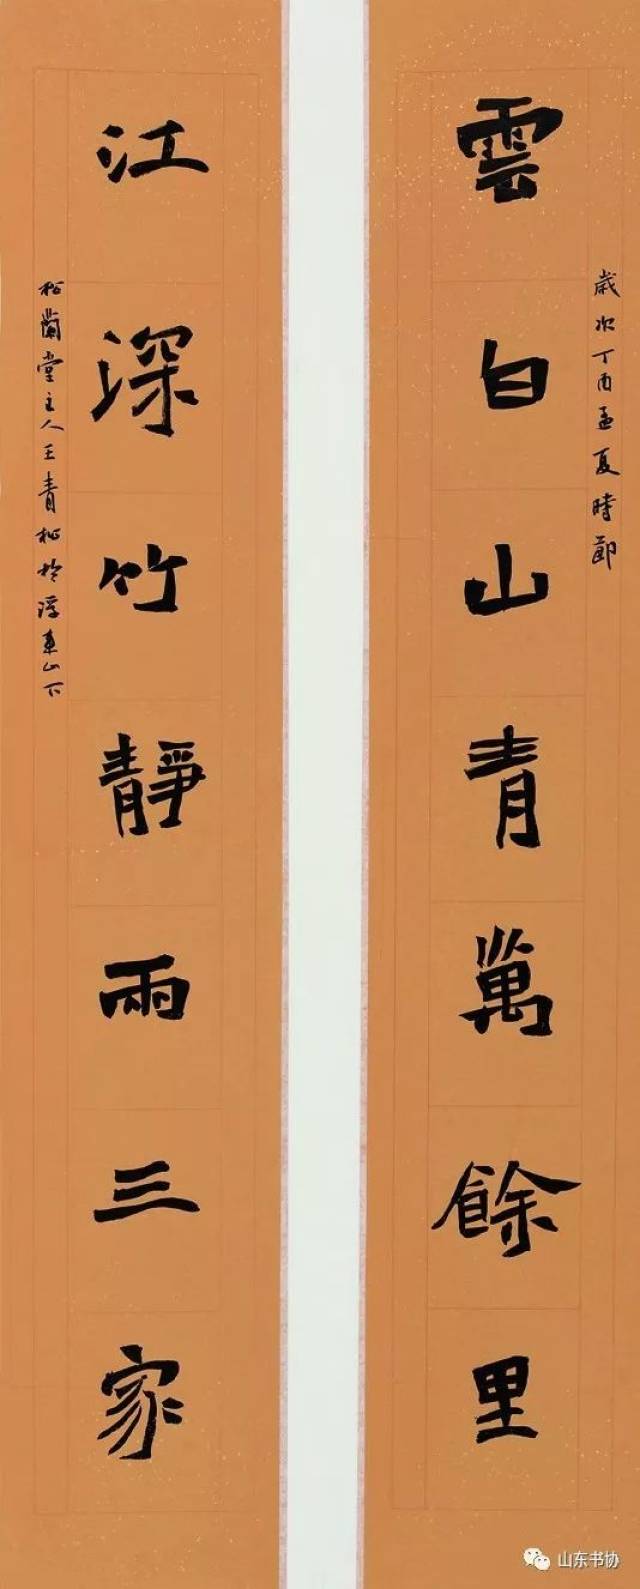 雲白山青萬餘里
歲次丁酉孟夏時節
江深竹靜兩三家
松蘭堂主人王青松於浮來山下
山东书协